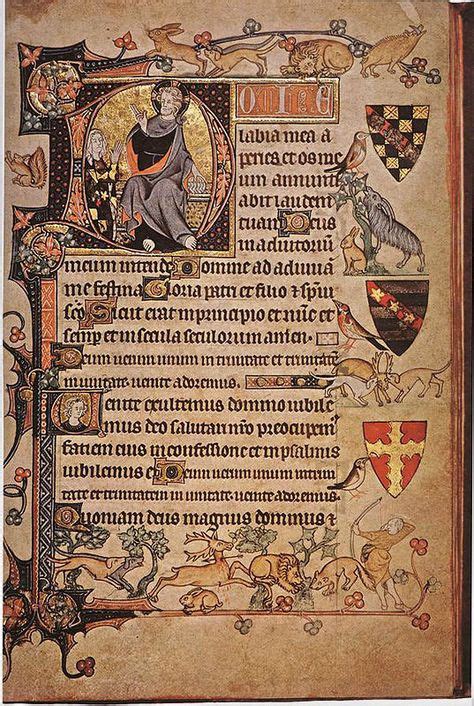 DOINE
labia mea a
peries et os me
um annunti
abit laudem
tuam Deus
in adiutoriū
meum intende Domine ad adiuuā
me festina Gloria patri et filio & spiu
sco Sicut erat in principio et nūc et
semp et in secula seculorum amen.
Deum uerum unum in trinitate et trinitatē
in unitate uenite adoremus.
Uenite exultemus domino iubile
mus deo salutari nro preocupem
faciem eius in confessione et in psalmis
iubilemus ei Deum uerum unum in trini
tate et trinitatem in unitate uenite adoremus.
Quoniam deus magnus dominus &